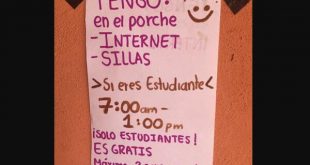 TENGO:
en el porche
-INTERNET
-SILLAS
>Si eres Estudiante<
7:00am -
1:00pm
¡SOLO ESTUDIANTES!
ES GRATIS